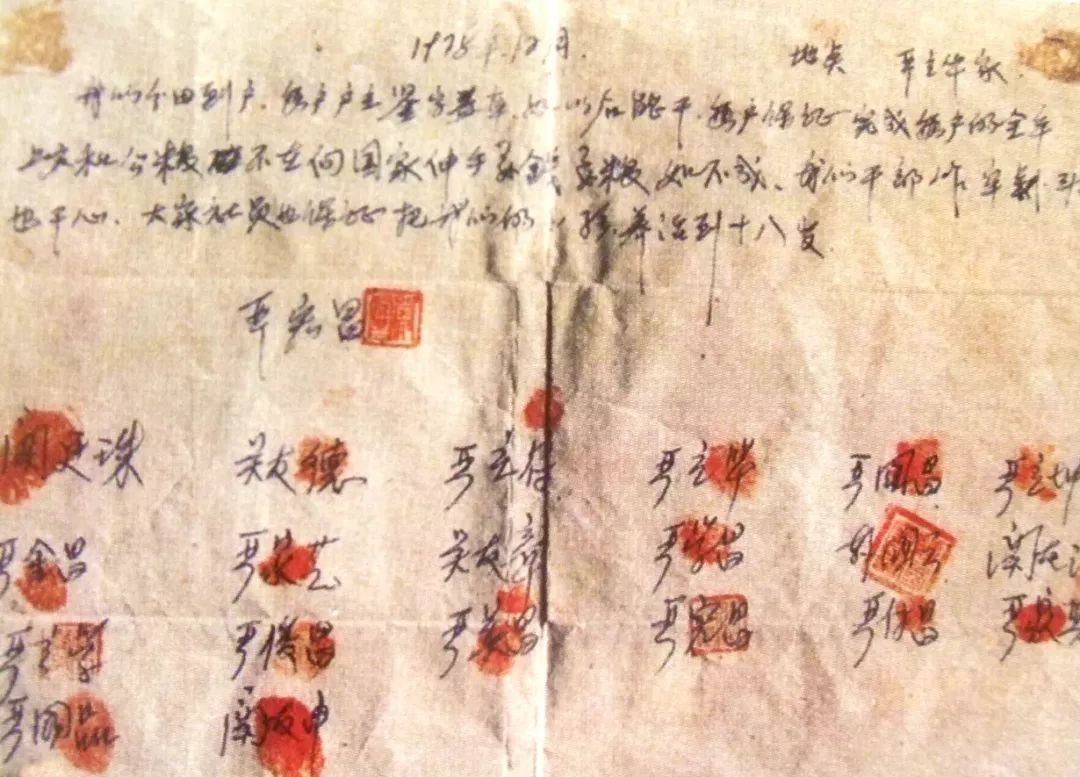 1978年12月. 地点 严立华家.
我们分田到户.每户户主签字盖章.如以后能干.每户保证完成每户的全年
上交和公粮 不在向国家伸手要钱要粮 如不成.我们干部作牢刹头
也干心.大家社员也保证把我们的小孩养活到十八岁.
严宏昌
关廷珠 关友德 严立付 严立华 严国昌 严立坤
严金昌 严家芝 关友章 严学昌 韩国云 关友江
严立学 严俊昌 严美昌 严宏昌 严付昌 严家其
严国品 关友申